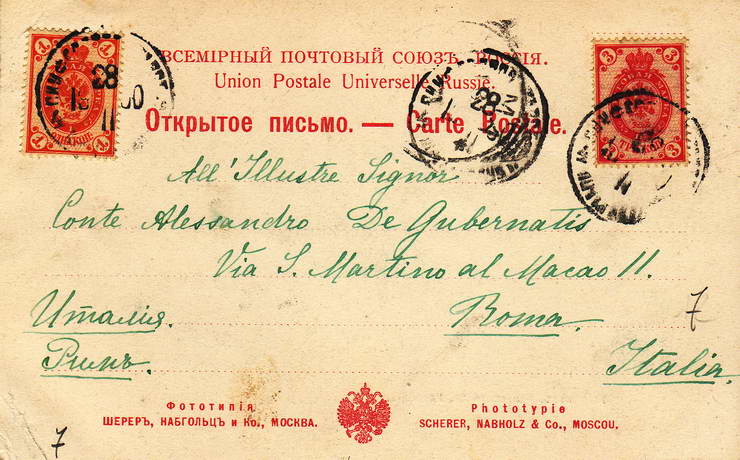 ВСЕМІРНЫЙ ПОЧТОВЫЙ СОЮЗЪ. РОССІЯ.
Union Postale Universelle. Russie.
Открытое письмо. — Carte Postale.
All' Illustre Signor
Conte Alessandro De Gubernatis
Via S. Martino al Macao 11.
Италия. Roma.
Римъ. Italia.
7
Фототипія
ШЕРЕРЪ, НАБГОЛЬЦЪ и Ко., МОСКВА.
Phototypie
SCHERER, NABHOLZ & Co., MOSCOU.
7